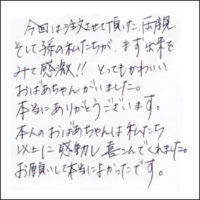 今回は注文させて頂いた
そして孫の私たちが、まず出来を
みて感激!! とってもかわいい
おばあちゃんがいました。
本当にありがとうございます。
本人のおばあちゃんは私たち
以上に感動し喜こんでくれました。
お願いして本当によかったです。